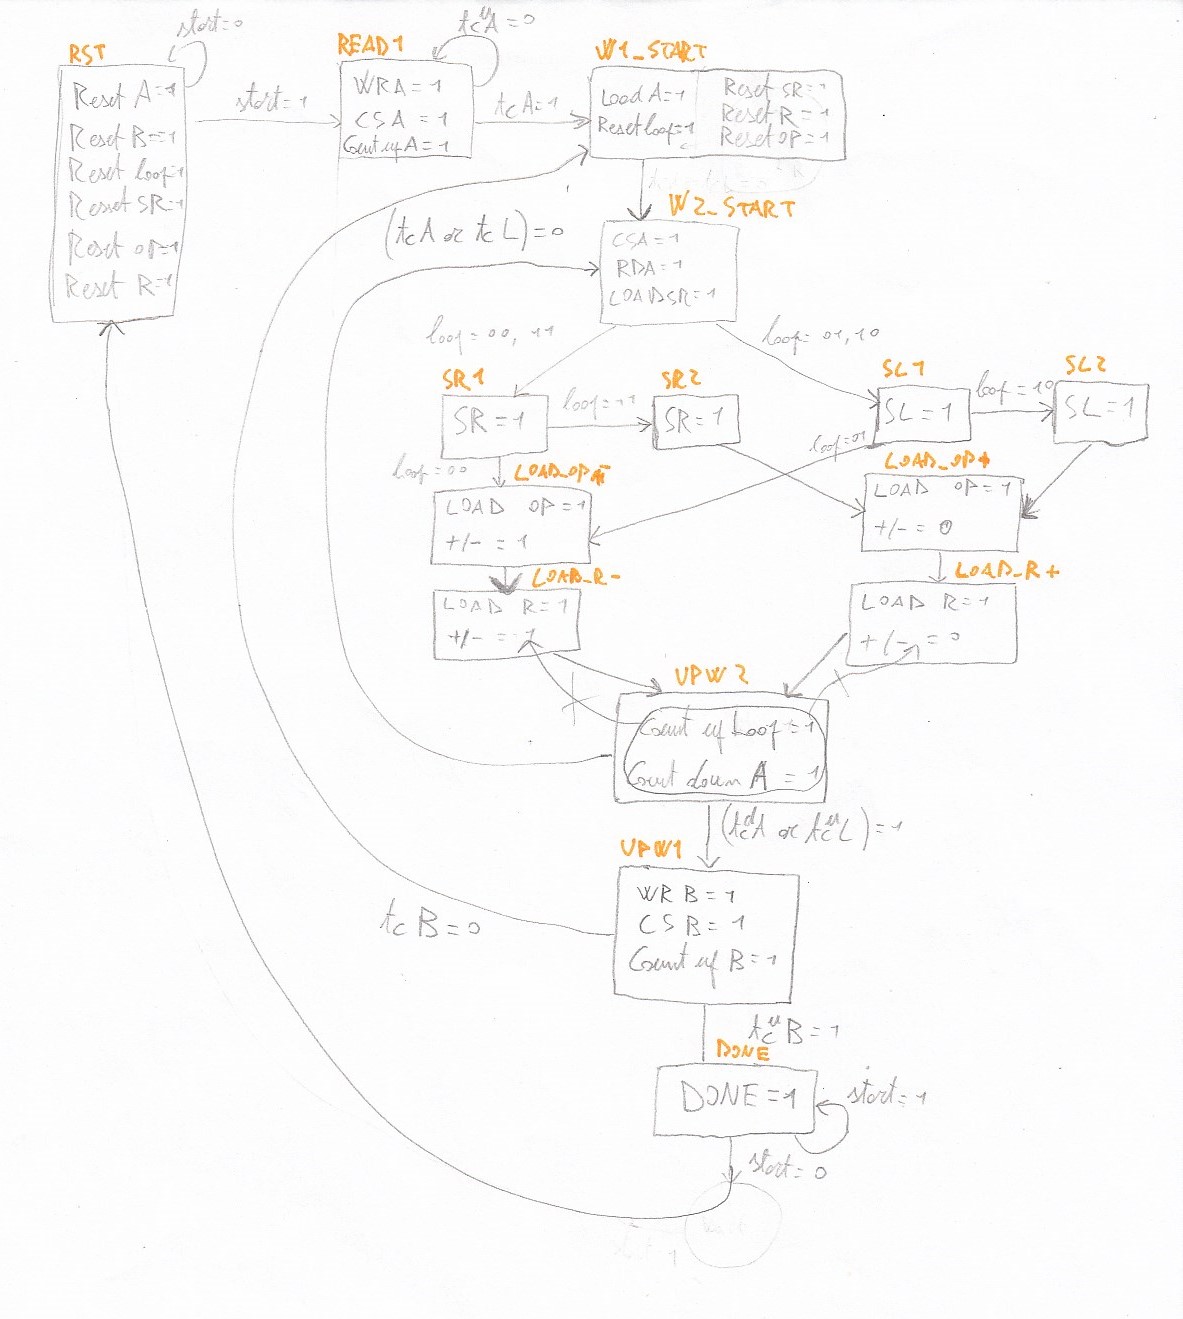 start=0
RST
Reset A=1
Reset B=1
Reset loop=1
Reset SR=1
Reset OP=1
Reset R=1
start=1
tcᵘA=0
READ1
WRA=1
CSA=1
Count up A=1
tcA=1
W1_START
Load A=1
Reset loop=1
Reset SR=1
Reset R=1
Reset OP=1
(tcA or tcL)=0
W2_START
CSA=1
RDA=1
LOADSR=1
loop=00, 11
loop=01,10
SR1
SR=1
loop=11
SR2
SR=1
SL1
SL=1
loop=10
SL2
SL=1
loop=00
loop=01
LOAD_OP-
LOAD OP=1
+/- = 1
LOAD_OP+
LOAD OP=1
+/- = 0
LOAD_R-
LOAD R=1
+/- = 1
LOAD_R+
LOAD R=1
+/- = 0
UPW2
Count up Loop=1
Count down A=1
(tcᵈA or tcᵘL)=1
UPW1
WRB=1
CSB=1
Count up B=1
tcB=0
tcᵘB=1
DONE
DONE=1
start=1
start=0